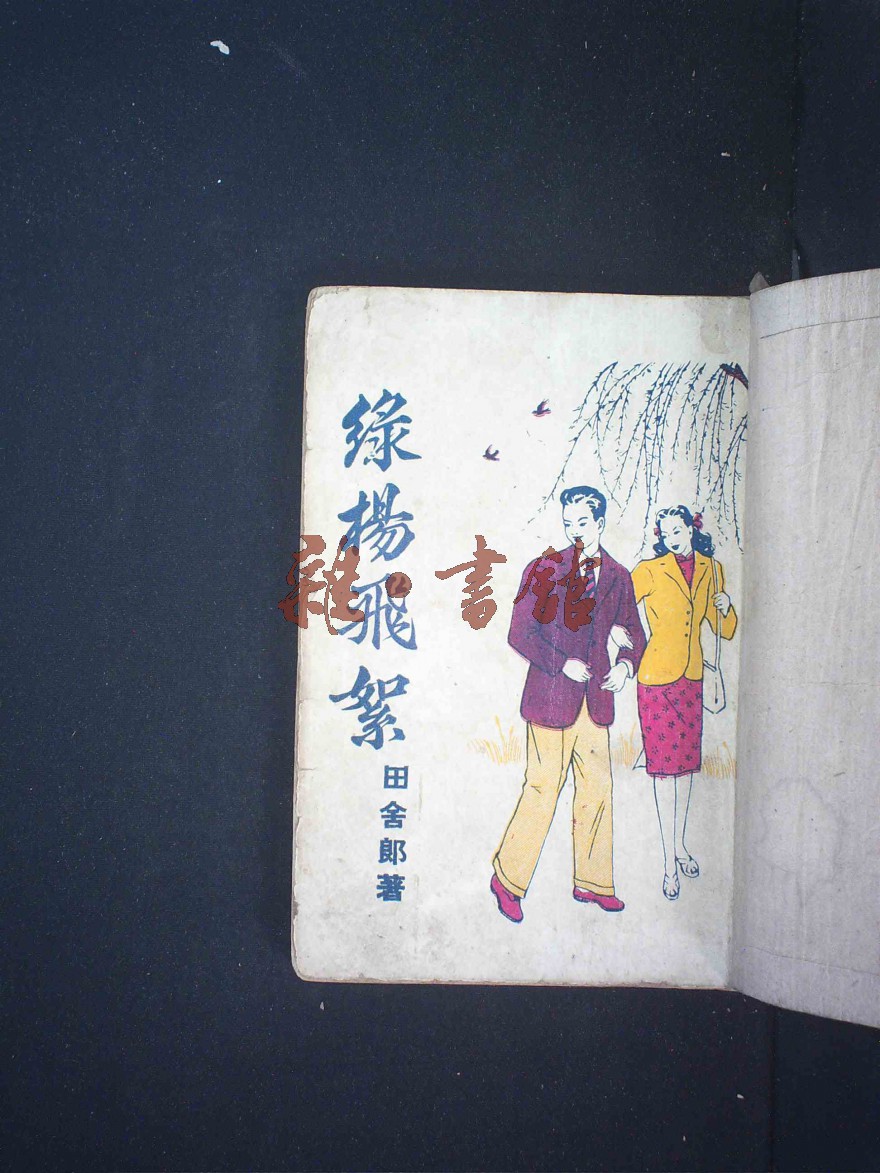 綠楊飛絮
田舍郎著
雜·書館